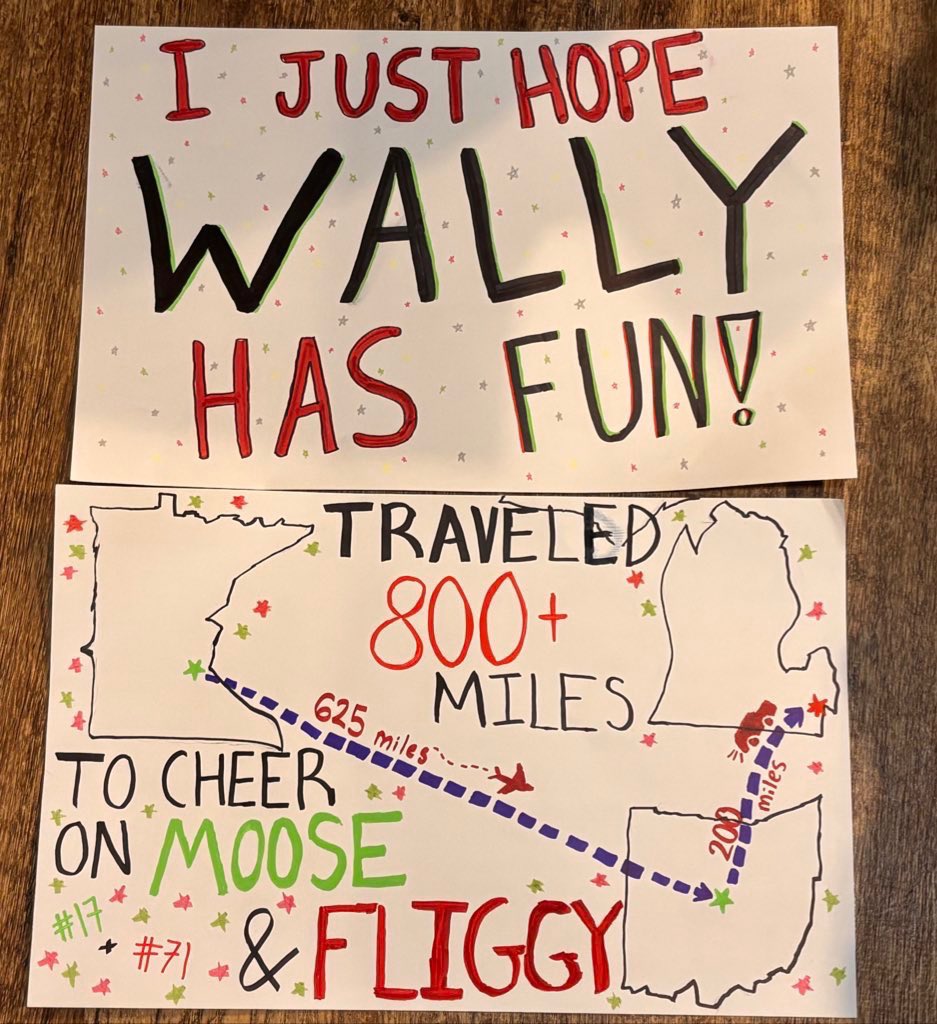 I JUST HOPE
WALLY
HAS FUN!
TRAVELED
800+
MILES
625 miles
200 miles
TO CHEER
ON MOOSE
#17 + #71
& FLIGGY